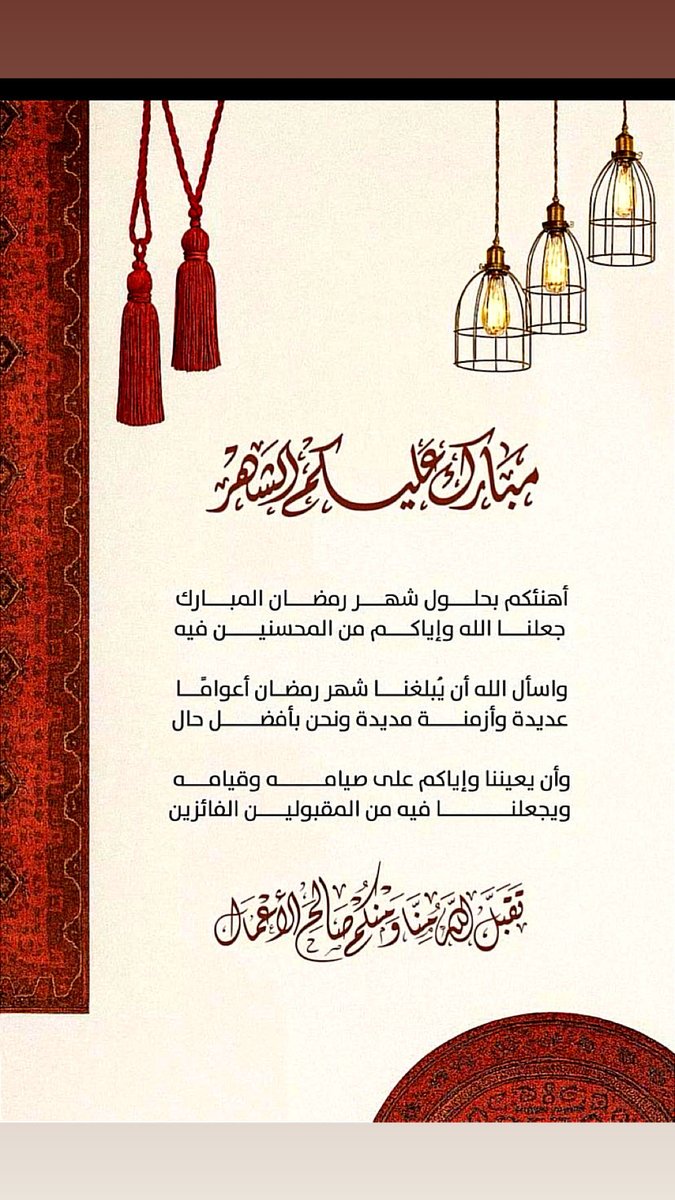 مبارك عليكم الشهر
أهنئكم بحلول شهر رمضان المبارك
جعلنا الله وإياكم من المحسنين فيه
واسأل الله أن يُبلغنا شهر رمضان أعوامًا
عديدة وأزمنة مديدة ونحن بأفضل حال
وأن يعيننا وإياكم على صيامه وقيامه
ويجعلنا فيه من المقبولين الفائزين
تَقَبَّلَ اللَّه مِنَّا وَمِنْكُم صَالِحَ الأَعْمَال